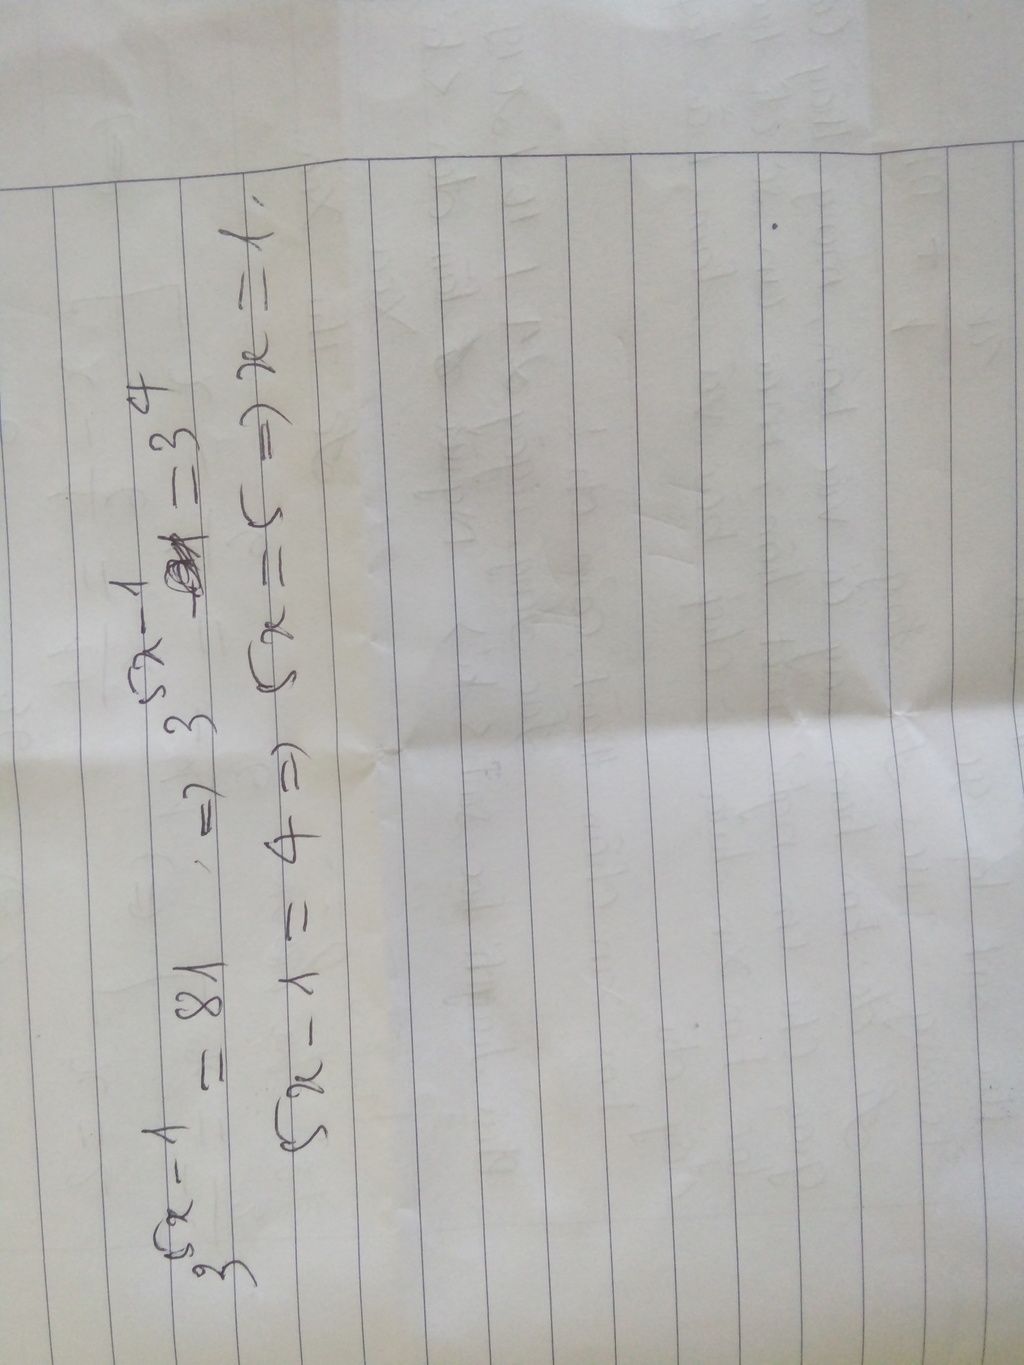 3^{5x-1} = 81 , => 3^{5x-1} = 3^4
5x - 1 = 4 => 5x = 5 => x = 1.